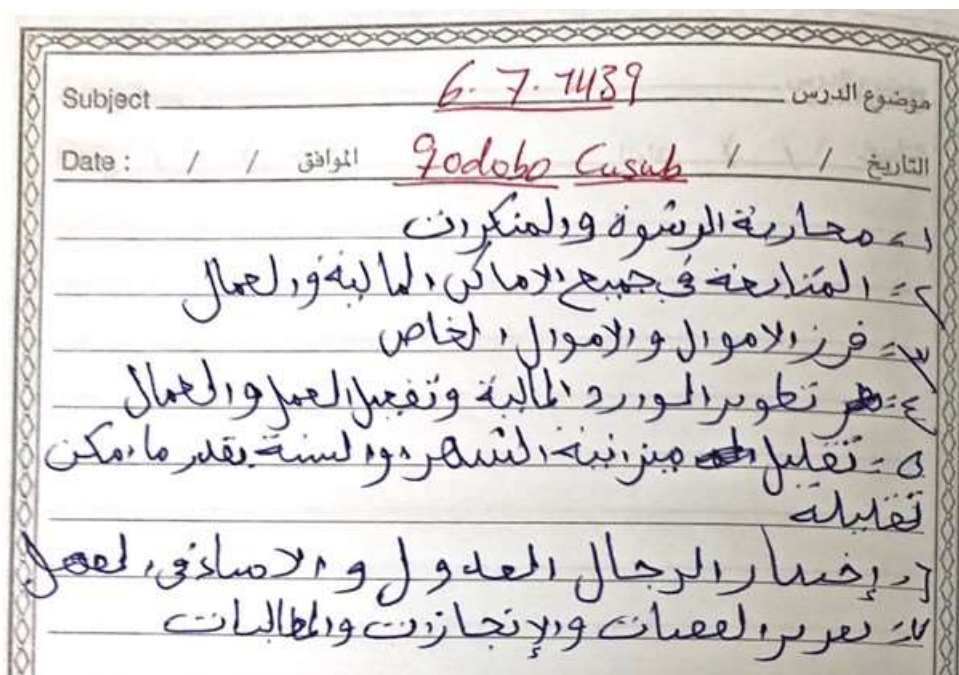 Subject 6.7.1439 موضوع الدرس
Date : / / الموافق Qodobo Cusub / / التاريخ
١- محاربة الرشوة والمنكرات
٢- المتابعة في جميع الاماكن المالية والعمال
٣- فرز الاموال والاموال الخاص
٤- تطوير المورد المالية وتفعيل العمل والعمال
٥- تقليل ميزانية الشهر والسنة بقدر ما امكن
تقليلة
٦- إختيار الرجال العدول و الاصادق العمل
٧- والإنجازات والمطالبات